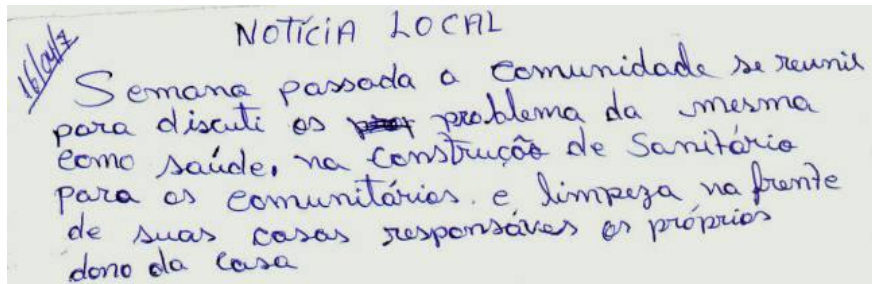 NOTÍCIA LOCAL
16/04/7
Semana passada a comunidade se reunil
para discuti os problema da mesma
como saúde, na construção de Sanitário
para os comunitários. e limpeza na frente
de suas casas responsáves os próprios
dono da casa